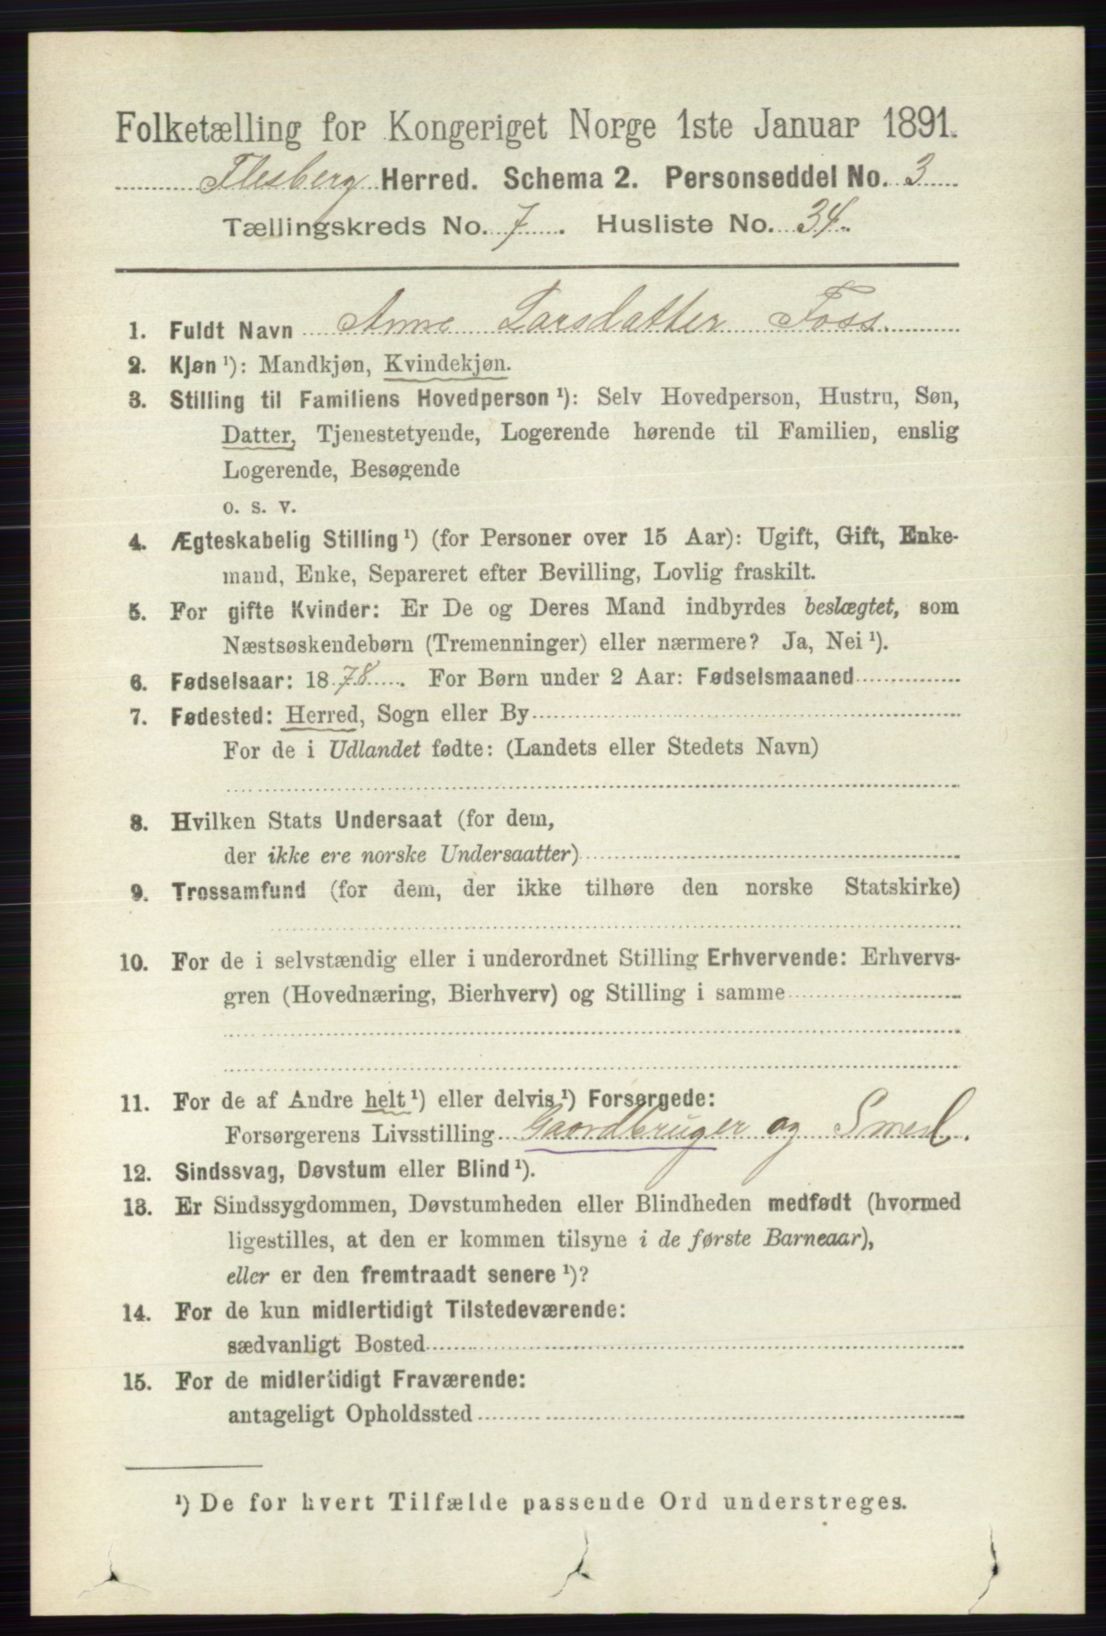 Folketælling for Kongeriget Norge 1ste Januar 1891.
Flesberg Herred. Schema 2. Personseddel No. 3
Tællingskreds No. 7. Husliste No. 34.
1. Fuldt Navn Anne Larsdatter Foss.
2. Kjøn ¹): Mandkjøn, Kvindekjøn.
3. Stilling til Familiens Hovedperson ¹): Selv Hovedperson, Hustru, Søn,
Datter, Tjenestetyende, Logerende hørende til Familien, enslig
Logerende, Besøgende
o. s. v.
4. Ægteskabelig Stilling ¹) (for Personer over 15 Aar): Ugift, Gift, Enke-
mand, Enke, Separeret efter Bevilling, Lovlig fraskilt.
5. For gifte Kvinder: Er De og Deres Mand indbyrdes beslægtet, som
Næstsøskendebørn (Tremenninger) eller nærmere? Ja, Nei ¹).
6. Fødselsaar: 1878. For Børn under 2 Aar: Fødselsmaaned
7. Fødested: Herred, Sogn eller By
For de i Udlandet fødte: (Landets eller Stedets Navn)
8. Hvilken Stats Undersaat (for dem,
der ikke ere norske Undersaatter)
9. Trossamfund (for dem, der ikke tilhøre den norske Statskirke)
10. For de i selvstændig eller i underordnet Stilling Erhvervende: Erhvervs-
gren (Hovednæring, Bierhverv) og Stilling i samme
11. For de af Andre helt ¹) eller delvis ¹) Forsørgede:
Forsørgerens Livsstilling Gaardbruger og Smed.
12. Sindssvag, Døvstum eller Blind ¹).
13. Er Sindssygdommen, Døvstumheden eller Blindheden medfødt (hvormed
ligestilles, at den er kommen tilsyne i de første Barneaar),
eller er den fremtraadt senere ¹)?
14. For de kun midlertidigt Tilstedeværende:
sædvanligt Bosted
15. For de midlertidigt Fraværende:
antageligt Opholdssted
¹) De for hvert Tilfælde passende Ord understreges.